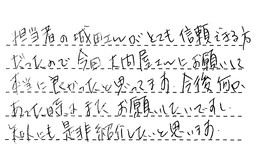 担当者の城田さんがとても信頼できる方
だったので今回大内屋さんにお願いして
本当に良かったと思ってます。今後何か
あった時はまたお願いしたいですし
知人にも是非紹介したいと思います。